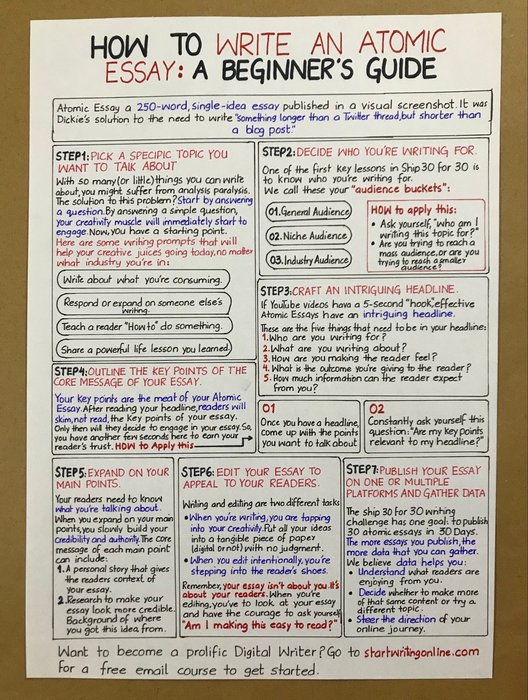 HOW TO WRITE AN ATOMIC
ESSAY: A BEGINNER'S GUIDE
Atomic Essay a 250-word, single-idea essay published in a visual screenshot. It was
Dickie's solution to the need to write "something longer than a Twitter thread, but shorter than
a blog post."
STEP1: PICK A SPECIFIC TOPIC YOU
WANT TO TALK ABOUT
With so many (or little) things you can write
about, you might suffer from analysis paralysis.
The solution to this problem? Start by answering
a question. By answering a simple question,
your creativity muscle will immediately start to
engage. Now, you have a starting point.
Here are some writing prompts that will
help your creative juices going today, no matter
what industry you're in:
Write about what you're consuming.
Respond or expand on someone else's
writing.
Teach a reader "How to" do something.
Share a powerful life lesson you learned
STEP2: DECIDE WHO YOU'RE WRITING FOR.
One of the first key lessons in Ship 30 for 30 is
to know who you're writing for.
We call these your "audience buckets":
01. General Audience
02. Niche Audience
03. Industry Audience
HOW to apply this:
• Ask yourself, "who am I
writing this topic for?"
• Are you trying to reach a
mass audience, or are you
trying to reach a smaller
audience?
STEP3: CRAFT AN INTRIGUING HEADLINE.
If YouTube videos have a 5-second "hook", effective
Atomic Essays have an intriguing headline.
These are the five things that need to be in your headline:
1. Who are you writing for?
2. What are you writing about?
3. How are you making the reader feel?
4. What is the outcome you're giving to the reader?
5. How much information can the reader expect
from you?
STEP4: OUTLINE THE KEY POINTS OF THE
CORE MESSAGE OF YOUR ESSAY.
Your key points are the meat of your Atomic
Essay. After reading your headline, readers will
skim, not read, the key points of your essay.
Only then will they decide to engage in your essay. So,
you have another few seconds here to earn your
reader's trust. HOW to Apply this
01
Once you have a headline,
come up with the points
you want to talk about
02
Constantly ask yourself this
question: "Are my key points
relevant to my headline?"
STEP5: EXPAND ON YOUR
MAIN POINTS.
Your readers need to know
what you're talking about.
When you expand on your main
points, you slowly build your
credibility and authority. The core
message of each main point
can include:
1. A personal story that gives
the readers context of
your essay.
2. Research to make your
essay look more credible.
Background of where
you got this idea from.
STEP6: EDIT YOUR ESSAY TO
APPEAL TO YOUR READERS.
Writing and editing are two different tasks
• When you're writing, you are tapping
into your creativity. Put all your ideas
into a tangible piece of paper
(digital or not) with no judgment.
• When you edit intentionally, you're
stepping into the reader's shoes.
Remember, your essay isn't about you. It's
about your readers. When you're
editing, you've to look at your essay
and have the courage to ask yourself
"Am I making this easy to read?"
STEP7: PUBLISH YOUR ESSAY
ON ONE OR MULTIPLE
PLATFORMS AND GATHER DATA
The Ship 30 for 30 writing
challenge has one goal: to publish
30 atomic essays in 30 Days.
The more essays you publish, the
more data that you can gather.
We believe data helps you:
• Understand what readers are
enjoying from you.
• Decide whether to make more
of that same content or try a
different topic.
• Steer the direction of your
online journey.
Want to become a prolific Digital Writer? Go to startwritingonline.com
for a free email course to get started.